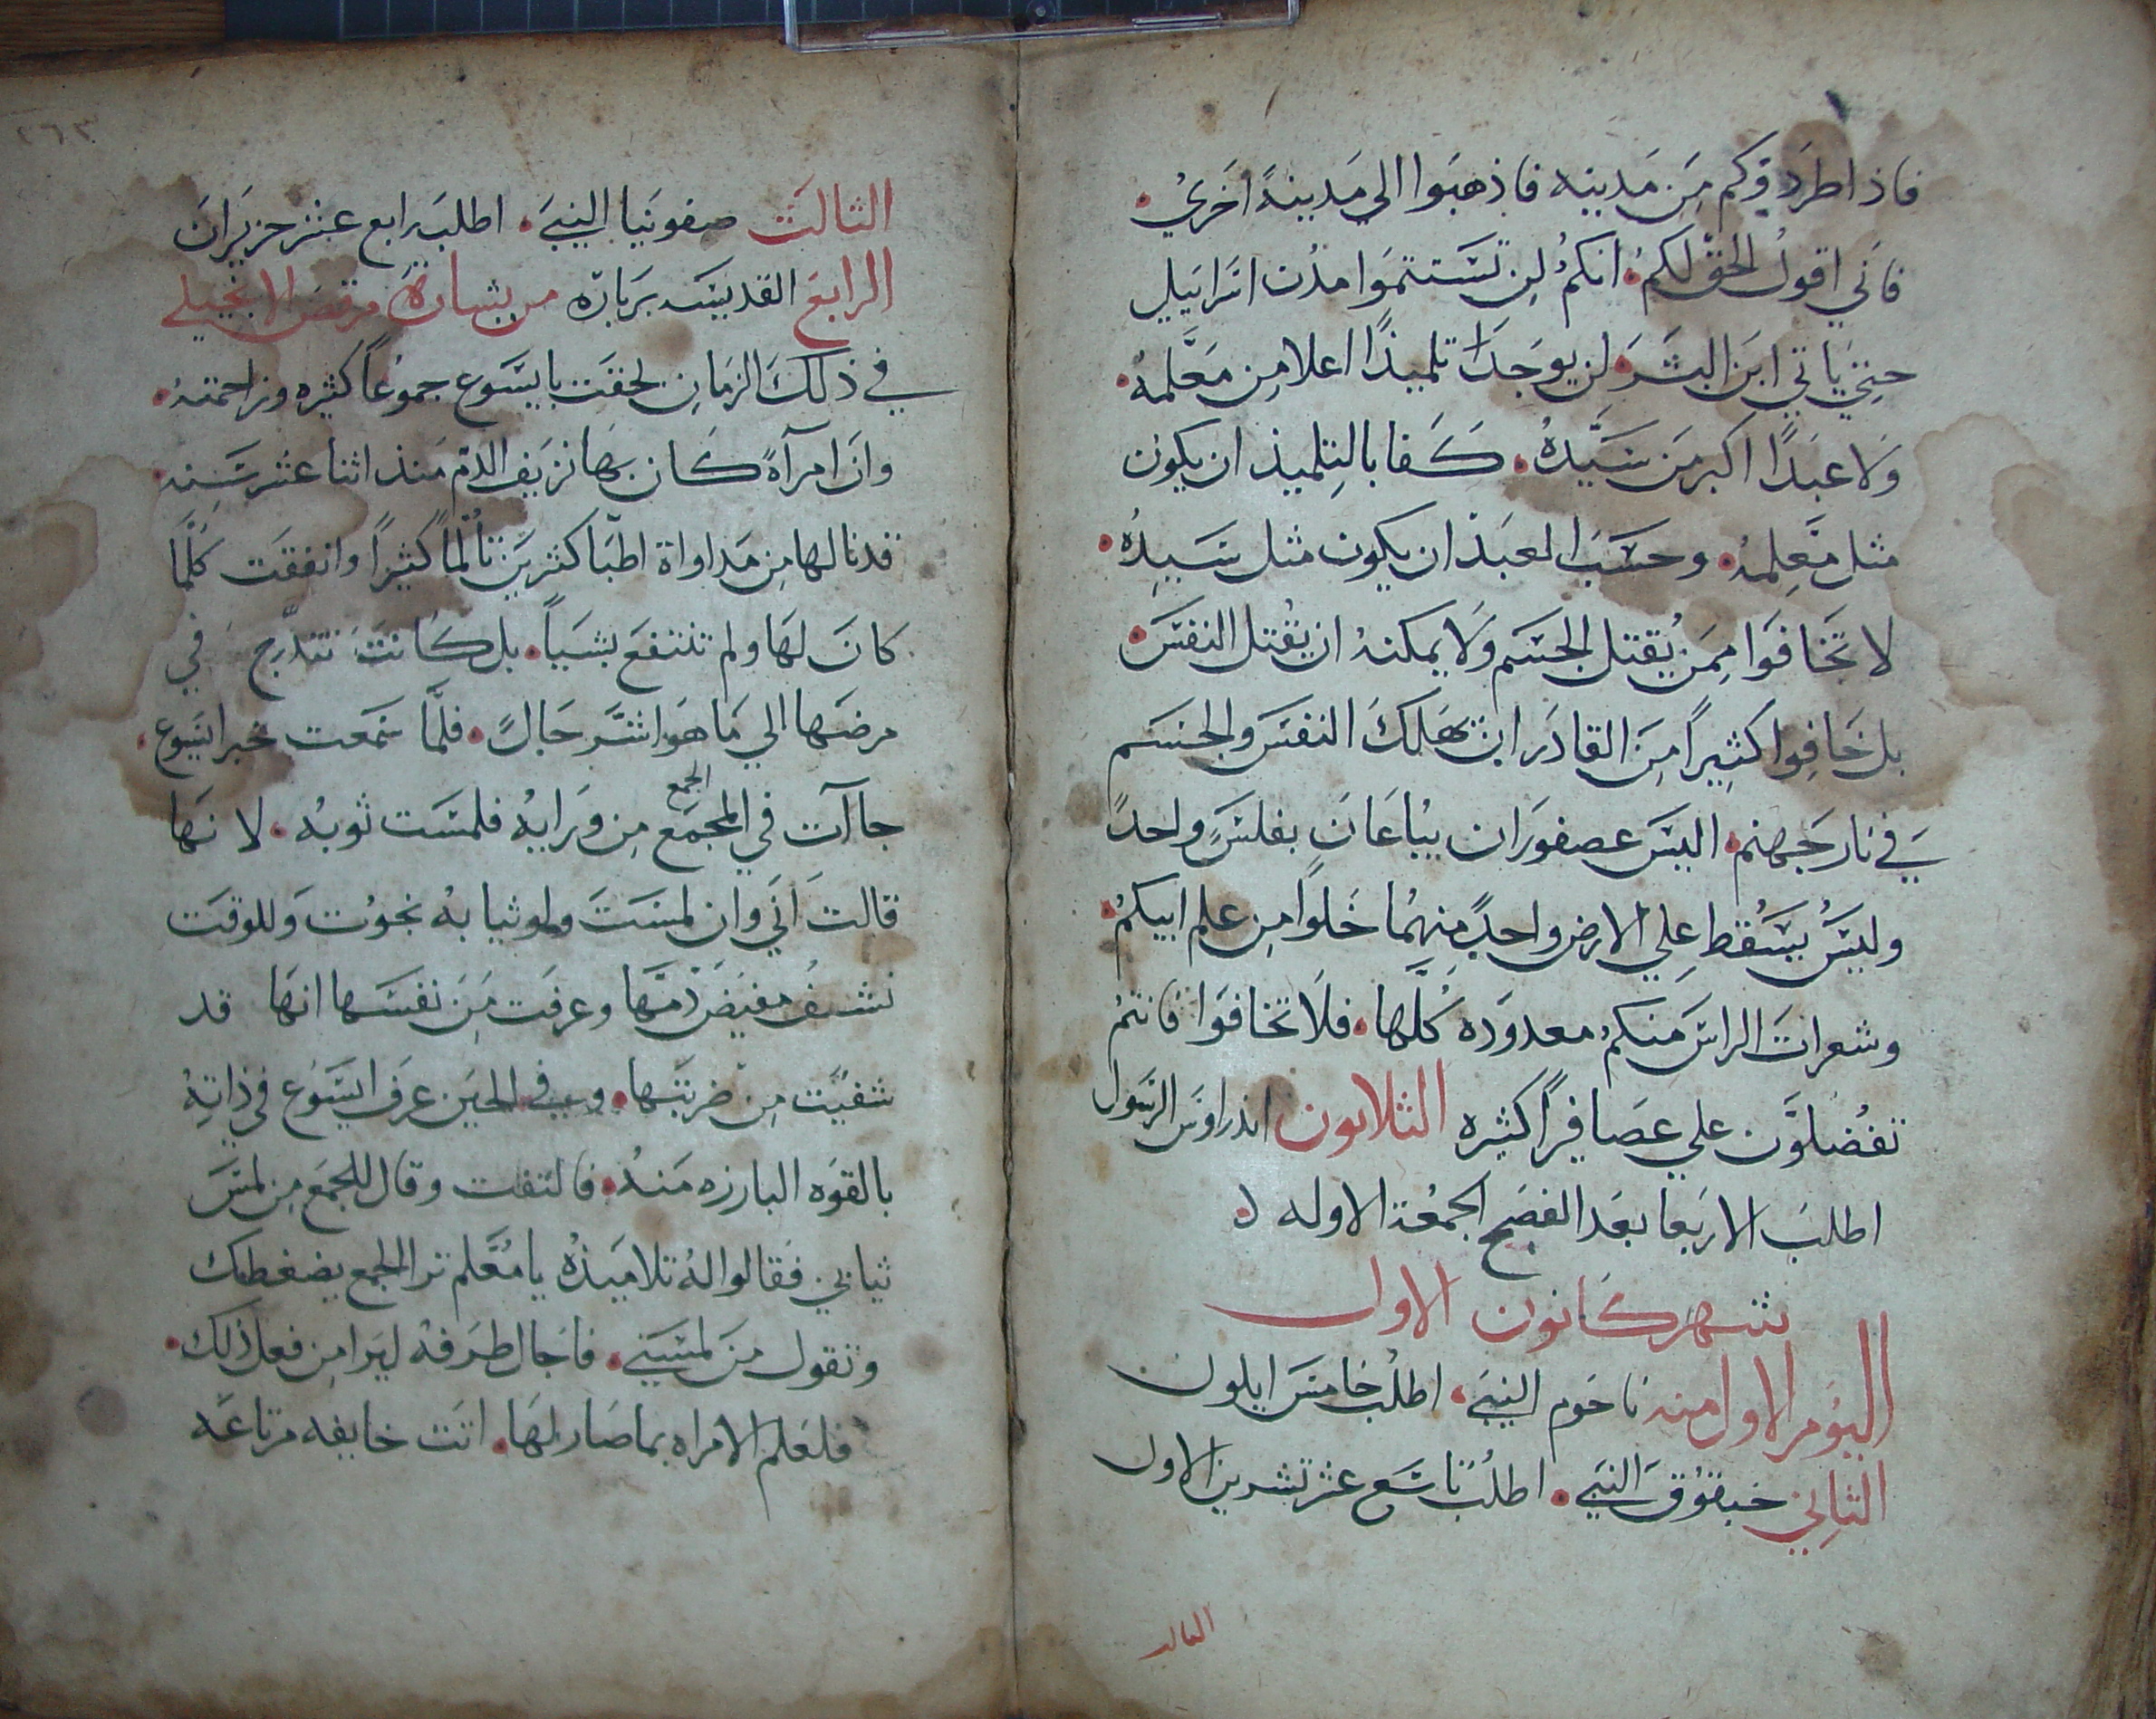 فاذا طردوكم من مدينه فاذهبوا الي مدينةً اخري
فاني اقول الحق لكم انكم لن تستتموا مدن اسراييل
حتي ياتي ابن البشر لن يوجدا تلميذًا اعلا من معلمه
ولا عبدًا اكبر من سيده كفا بالتلميذ ان يكون
مثل معلمه وحسب العبد ان يكون مثل سيده
لا تخافوا ممن يقتل الجسم ولا يمكنه ان يقتل النفس
بل خافوا كثيرًا من القادر ان يهلك النفس والجسم
في نار جهنم اليس عصفوران يباعان بفلسٍ واحدً
وليس يسقط علي الارض واحدً منهما خلوًا من علم ابيكم
وشعرات الراس منكم معدوده كلها فلا تخافوا فانتم
تفضلون علي عصافيرًا كثيره الثلاثون اندراوس الرسول
اطلب الاربعا بعد الفصح الجمعة الاوله
شهر كانون الاول
اليوم الاول منه ناحوم النبي اطلب خامس ايلون
الثاني حبقوق النبي اطلب تاسع عشر تشرين الاول
الثالث
٢٦٣
الثالث صفونيا النبي اطلب رابع عشر حزيران
الرابع القديسه برباره من بشارة مرقص الانجيلي
في ذلك الزمان لحقت بايسوع جموعاً كثيره وزاحمته
وان امرآةً كان بها نزيف الدم منذ اثنا عشر سنه
قد نالها من مداواة اطبا كثرين تألماً كثيراً وانفقت كلما
كان لها ولم تنتفع بشياً بل كانت تتدرج في
مرضها الي ما هو اشر حالً فلما سمعت بخبر ايسوع
جاآت في المجمع الجمع من ورايه فلمست ثوبه لانها
قالت اني وان لمست ولو ثيابه نجوت وللوقت
نشف مفيض دمها وعرفت من نفسها انها قد
شفيت من ضربتها وفي الحين عرف ايسوع في ذاته
بالقوه البارزه منه فالتفت وقال للجمع من لمس
ثيابي فقالوا له تلاميذه يا معلم ترا الجمع يضغطك
وتقول من لمسني فاجال طرفه ليرا من فعل ذلك
فلعلم الامراه بما صار لها اتت خايفه مرتاعه